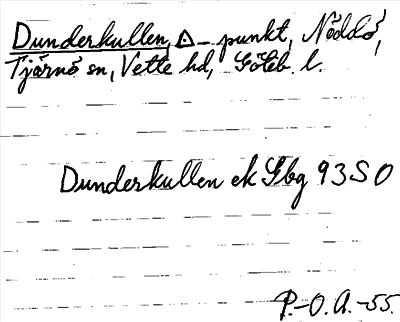 Dunderkullen, △-punkt, Nöddö,
Tjärnö sn, Vette hd, Göteb. l.
Dunderkullen ek Gbg 93 S O
P.-O. A. -55.